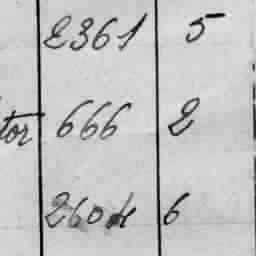 2361 5
tor 666 2
2604 6